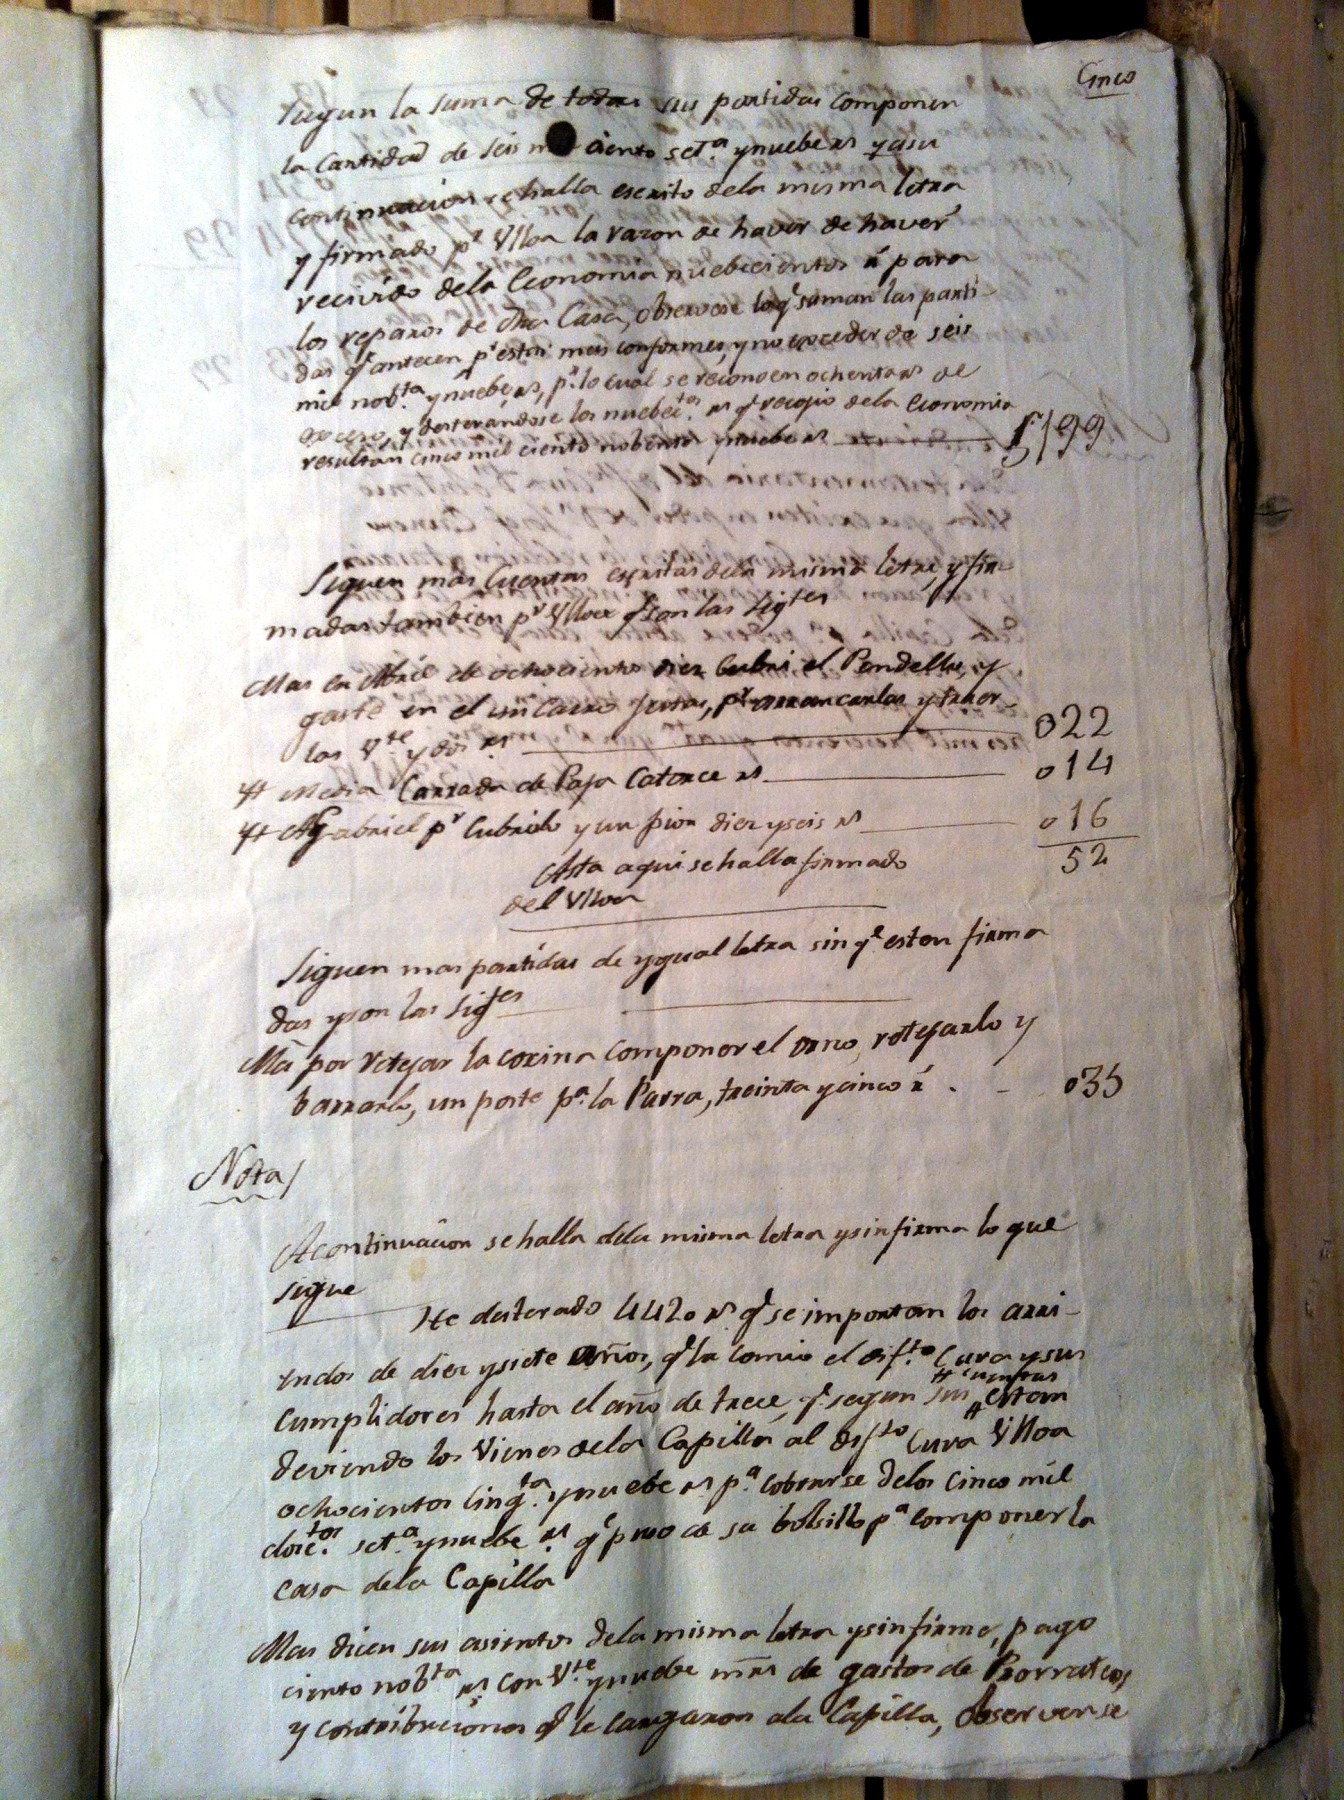 Cinco
segun la suma de todas sus partidas componen
la Cantidad de seis m ciento set.ª ynuebe rs y asu
Continuacion se halla escrito dela misma letra
y firmado pr Ulloa la razon de haver de haver
recivido dela Economia nuebecientos rs para
los reparos de dha Casa, observese lo q.e suman las parti-
das q.e antecen pr estar mas conformes, y no exceder de seis
mil nob.ta ynuebe rs, pr lo cual se reconocen ochenta rs de
exceso, y desterandose los nuebec.tos rs q.e recogio dela Economia
resultan cinco mil ciento nobenta ynuebe rs 5199
Siguen mas Cuentas escritas dela misma letra, y fir-
madas tambien pr Ulloa q.e son las sigtes
Mas en Abril de ochocientos diez Cubri el Pendello, y
gasté en el un Carro jestas, pr arrancarlas y traer
las Vte y dos rs 022
Yt Media Carrada de Paja Catorce rs 014
Yt A Gabriel pr Cubrirlo y un pion diez yseis rs 016
52
Asta aqui se halla firmado
del Ulloa
Siguen mas partidas de ygual letra sin q.e esten firma
das y son las sigtes
Ma por Retejar la cozina componer el orno, retejarlo y
barrarlo, un poste p.ª la Parra, treinta y cinco rs 035
Nota/
A continuacion se halla dela misma letra ysin firma lo que
sigue
He desterado 4420 rs q.e se importan los arri-
endos de diez ysiete años, q.e la comio el dif.to Cura y sus
Cumplidores hasta el año de trece, q.e segun sus cuentas estan
deviendo los Vienes dela Capilla al dif.to Cura Ulloa
ochocientos cinq.ta ynuebe rs p.ª cobrarse delos cinco mil
doic.tos set.ª ynuebe rs q.e puso de su bolsillo p.ª componer la
casa dela Capilla
Mas dicen sus asientos dela misma letra ysin firma, pago
ciento nob.ta rs con Vte ynuebe mrs de gastos de Prorrateos
y contribuciones q.e le cargaron ala Capilla, Observense